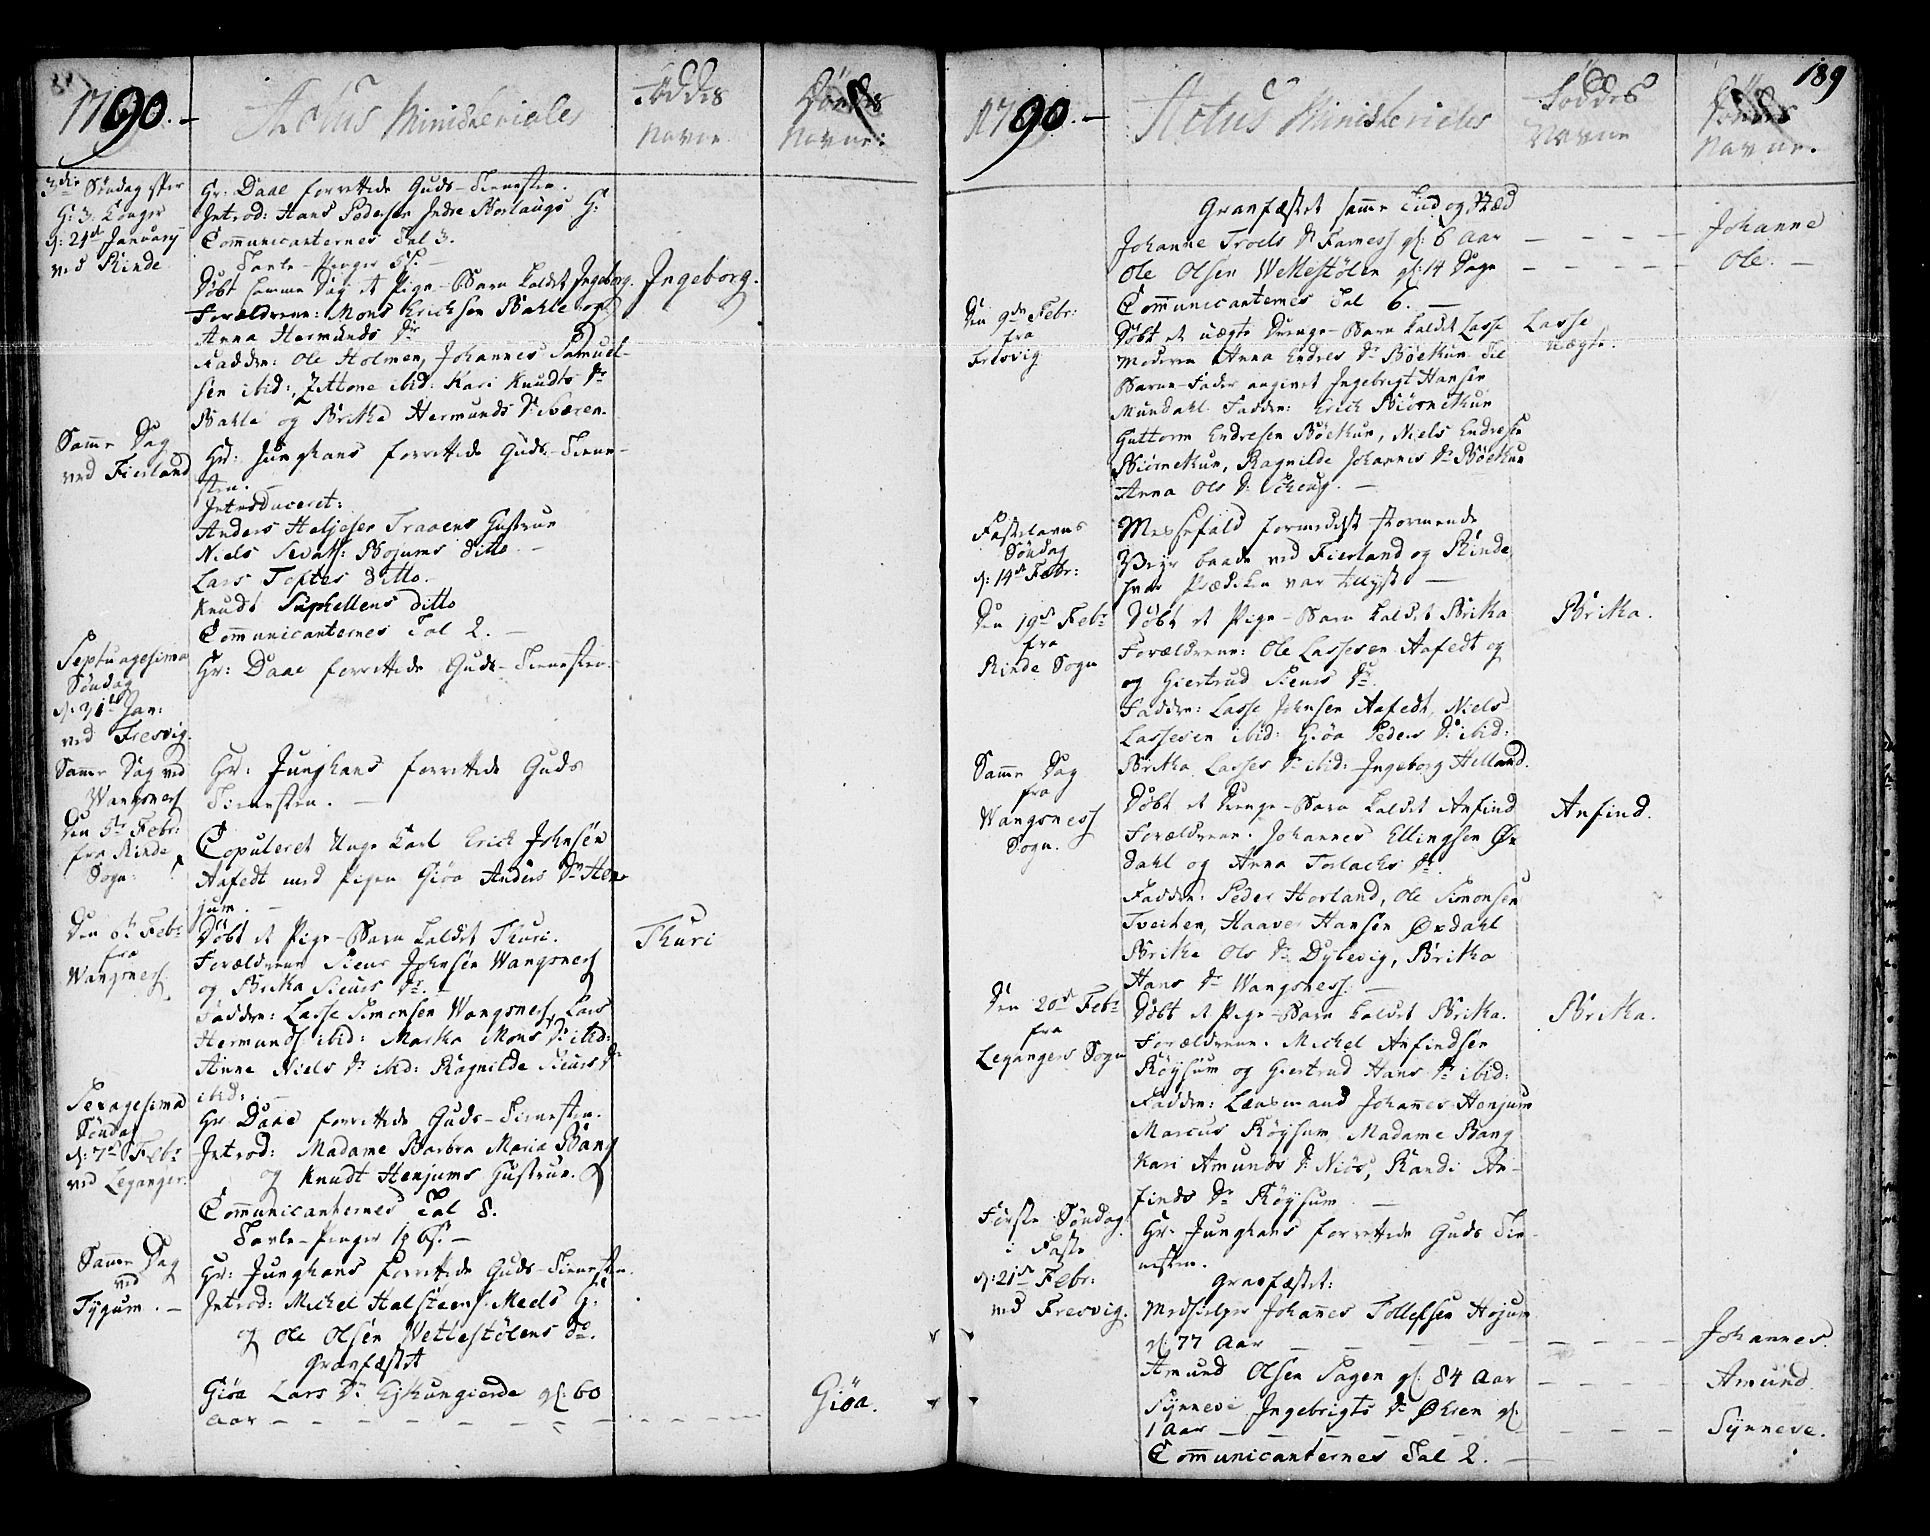 1790.
Actus Ministeriales
Føddes
Navne
Dødes
Navne:
3die Søndag efter
H: 3. Konger
d: 24de January
ved Rinde
Hr: Daae forrettede Guds-Tienesten.
Introd: Hans Pedersen Indre Norlaugs H:
Communicanternes Tal 3.
Tavle-Penge
Døbt samme Dag et Pige-Barn kaldet Ingeborg.
Ingeborg.
Forældrene: Mons Erichsen Bahle og
Anna Hermunds Dr
Faddre: Ole Holmen, Johannes Samuel-
sen ibid: Zittone ibid: Kari Knudts Dr
Bahle og Britha Hermunds Dr Sværen.
Samme Dag
ved Fierland
Hr: Junghans forrettede Guds-Tiene-
sten.
Introduceret:
Anders Heljesen Traaens Hustrue
Niels Sevats: Bojums ditto.
Lars Toftes ditto.
Knudt Suphellens ditto
Communicanternes Tal 2.
Septuagesima
Søndag
d: 31te Jan:
ved Fresvig.
Hr: Daae forrettede Guds-Tienesten.
Samme Dag ved
Wangsness
Hr: Junghans forrettede Guds
Tienesten.
Den 5te Febr:
fra Rinde
Sogn:
Copuleret Unge Karl Erich Johnsen
Aafedt med Pigen Giøa Anders Dr Hen-
jum.
Den 6te Febr:
fra
Wangsness
Døbt et Pige-Barn kaldet Thuri.
Thuri
Forældrene Sieur Johnsen Wangsness
og Britha Sieurs Dr.
Faddre: Lasse Simonsen Wangsness, Lars
Hermunds: ibid: Martha Mons Dr ibid:
Anna Niels Dr ibid: Ragnilde Sieurs Dr
ibid:
Sexagesima
Søndag
d: 7de Febr
ved Leganger.
Hr: Daae forrettede Guds-Tienesten.
Introd: Madame Barbra Maria Bang
og Knudt Henjums Hustrue.
Communicanternes Tal 8.
Tavle-Penger
Samme Dag
ved
Tygum.
Hr: Junghans forrettede Guds-Tienesten.
Introd: Michel Halsteens: Meels H:
og Ole Olsen Vettestølens do.
Gravfæstet
Giøa Lars Dr Ejkungierde gl: 60
Aar
Giøa.
1790.
Actus Ministeriales
Føddes
Navne
Dødes
Navne.
189
Gravfæstet samme Tiid og Stæd
Johanne Troels Dr Farness gl: 6 Aar
Johanne
Ole Olsen Wettestølen gl: 14 Dage
Ole.
Communicanternes Tal 6.
Den 9de Febr:
fra
Fresvig
Døbt et uægte Drenge-Barn kaldet Lasse
Lasse
uægte.
Moderen Anna Endres Dr Bøetun. Til
Barne-Fader angivet Ingebrigt Hansen
Mundahl. Faddre: Erich Biørnetun
Guttorm Endresen Bøetun, Niels Endresen
Biørnetun, Ragnilde Johannes Dr Bøetun
Anna Ols Dr
Fastelavns
Søndag
d: 14de Febr:
Messefald formedelst stormende
Vejr baade ved Fierland og Rinde
hvor Prædiken var tillyst
Den 19de Febr
fra
Rinde Sogn
Døbt et Pige-Barn kaldet Britha
Britha.
Forældrene: Ole Lassesen Aafedt og
og Giertrud Sieurs Dr.
Faddre: Lasse Johnsen Aafedt, Niels
Lassesen ibid: Giøa Peders Dr ibid:
Britha Lasses Dr ibid: Ingeborg Helland.
Samme Dag
fra
Wangsness
Sogn.
Døbt et Drenge-Barn kaldet Anfind
Anfind.
Forældrene. Johannes Ellingsen Øv-
dahl og Anna Torlachs Dr.
Faddre: Peder Hovland, Ole Simonsen
Tveiten, Haaver Hansen Øvdahl
Britha Ols Dr Dylevig, Britha
Hans Dr Wangsness.
Den 20de Febr
fra
Legangers Sogn
Døbt et Pige-Barn kaldet Britha.
Britha.
Forældrene. Michel Anfindsen
Røysum og Giertrud Hans Dr ibid:
Faddre: Lænsmand Johanes Henjum
Marcus Røysum, Madame Bang
Kari Amunds Dr Niøs, Randi An-
finds Dr Røysum
Første Søndag
i Faste
d: 21de Febr:
ved Fresvig.
Hr: Junghans forrettede Guds Tie-
nesten.
Gravfæstet:
Medhielper Johannes Tollefsen Hojum
gl: 77 Aar
Johannes.
Amund Olsen Sagen gl: 84 Aar
Amund.
Synneve Ingebrigts Dr Øhren gl:
1 Aar
Synneve.
Communicanternes Tal 2.